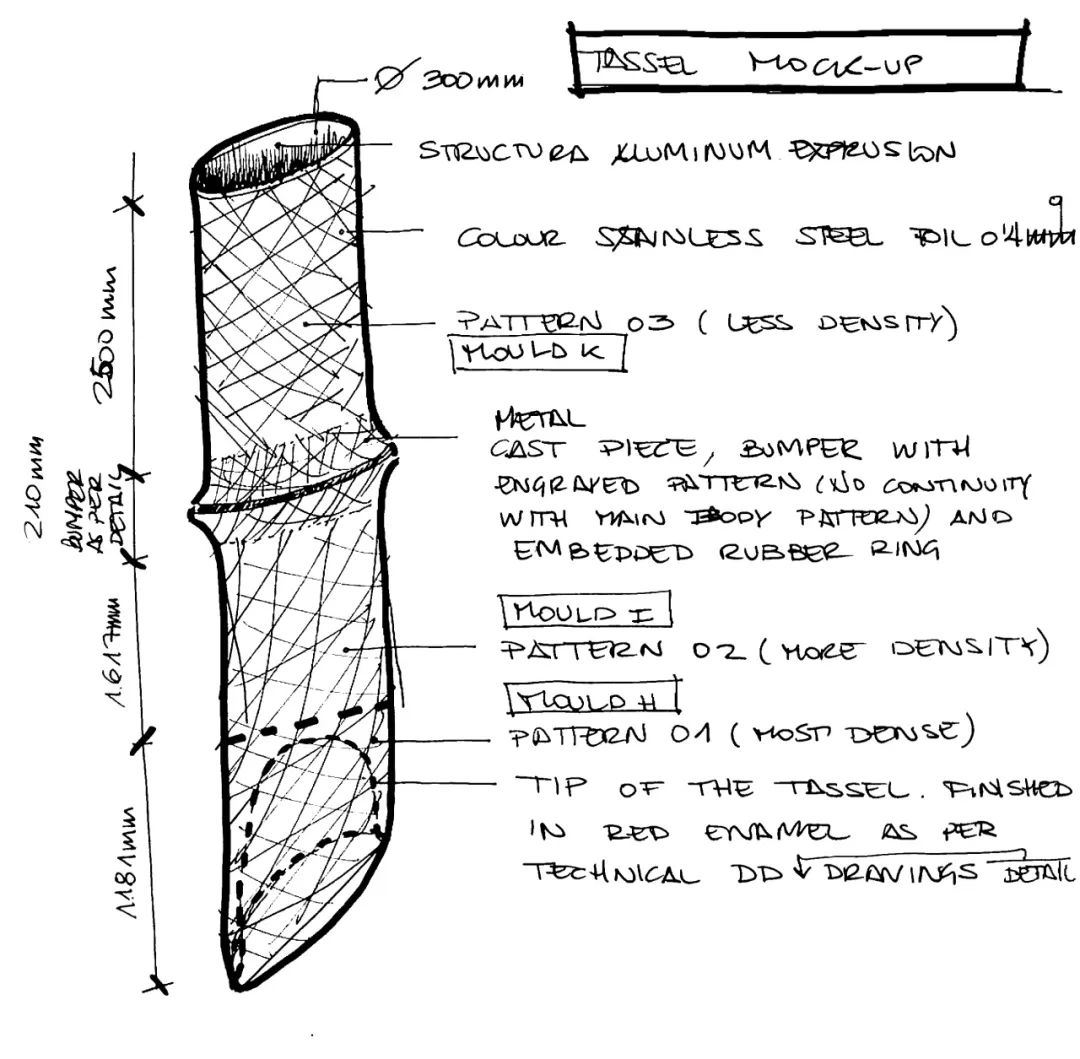 TASSEL MOCK-UP
Ø 300mm
STRUCTURA ALUMINUM EXPRUSION
COLOUR STAINLESS STEEL FOIL 0'4mm
PATTERN 03 (LESS DENSITY)
MOULD K
METAL
CAST PIECE, BUMPER WITH
ENGRAVED PATTERN (NO CONTINUITY
WITH MAIN BODY PATTERN) AND
EMBEDDED RUBBER RING
MOULD I
PATTERN 02 (MORE DENSITY)
MOULD H
PATTERN 01 (MOST DENSE)
TIP OF THE TASSEL. FINISHED
IN RED ENAMEL AS PER
TECHNICAL DD DRAWINGS DETAIL
2500 mm
210mm
BUMPER
AS PER
DETAIL
1.617mm
1.181mm